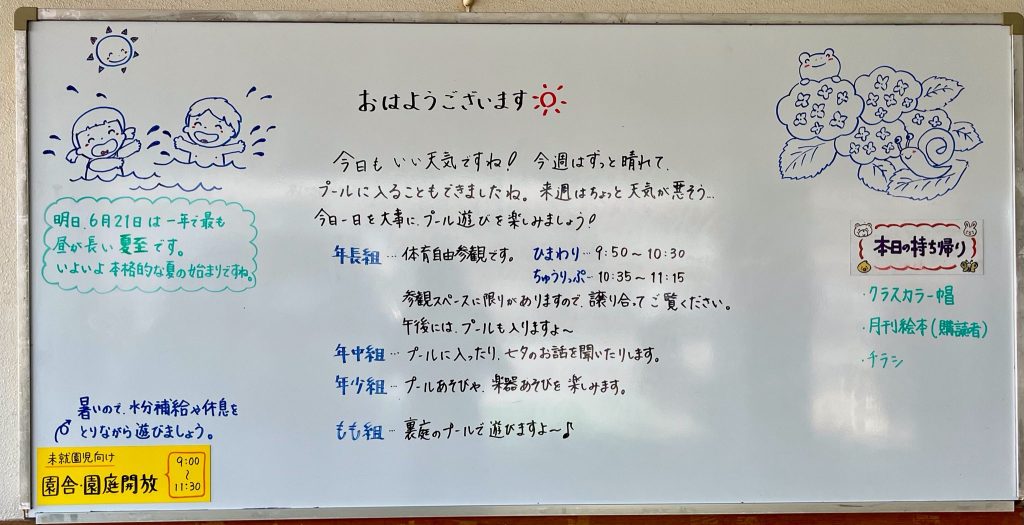 おはようございます
今日も いい天気ですね! 今週はずっと晴れて、
プールに入ることもできましたね。来週はちょっと天気が悪そう…
今日一日を大事に、プール遊びを楽しみましょう!
年長組…体育自由参観です。 ひまわり…9:50〜10:30
ちゅうりっぷ…10:35〜11:15
参観スペースに限りがありますので、譲り合ってご覧ください。
午後には、プールも入りますよ〜
年中組…プールに入ったり、七夕のお話を聞いたりします。
年少組…プールあそびや、楽器あそびを楽しみます。
もも組…裏庭のプールで遊びますよ〜♪
明日、6月21日は一年で最も
昼が長い夏至です。
いよいよ本格的な夏の始まりですね。
暑いので、水分補給や休息を
とりながら遊びましょう。
未就園児向け
園舎・園庭開放
9:00
〜
11:30
本日の持ち帰り
・クラスカラー帽
・月刊絵本(購読者)
・チラシ